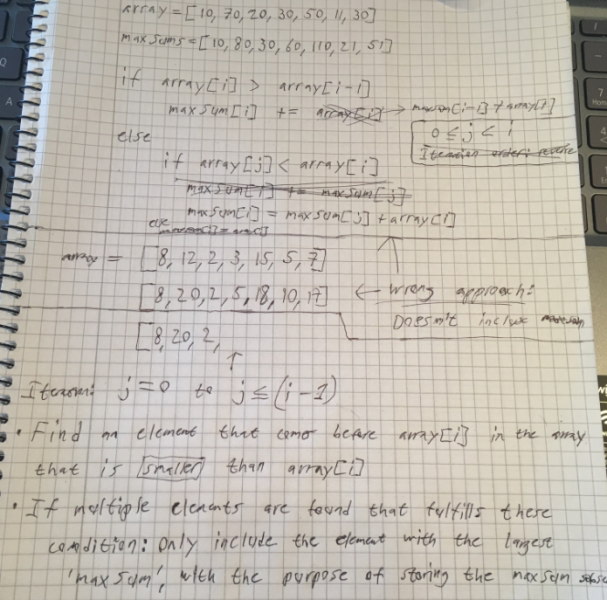 array = [10, 70, 20, 30, 50, 11, 30]
maxSums = [10, 80, 30, 60, 110, 21, 51]
if array[i] > array[i-1]
maxSum[i] += array[i] → maxsum[i-1] + array[i]
0 ≤ j < i
else
Iteration order: reverse
if array[j] < array[i]
maxSum[i] += maxSum[j]
maxSum[i] = maxSum[j] + array[i]
else
array = [8, 12, 2, 3, 15, 5, 7]
[8, 20, 2, 5, 18, 10, 17] ← Wrong approach:
Doesn't include
[8, 20, 2,
↑
Iteration: j=0 to j≤(i-1)
• Find an element that come before array[i] in the array
that is smaller than array[i]
• If multiple elements are found that fulfills these
condition: only include the element with the largest
'maxSum', with the purpose of storing the maxsum